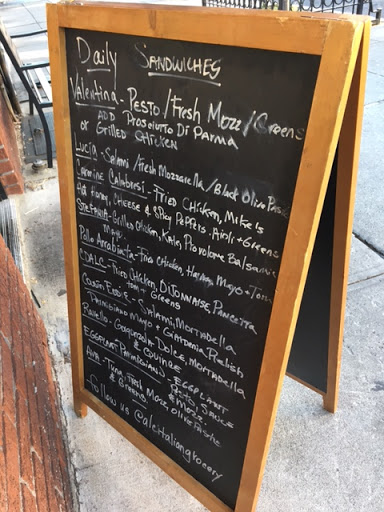 Daily Sandwiches
Valentina - Pesto / Fresh Mozz / Greens
ADD Prosciutto Di Parma
or Grilled Chicken
Lucia - Salami / Fresh Mozzarella / Black Olive
Carmine Calabresi - Fried Chicken, Mike's
Hot Honey, Cheese & Spicy Peppers, Aioli + Greens
Stefania - Grilled Chicken, Kale, Provolone Balsamic
Mayo
Pollo Arrabiata - Fried Chicken, Harissa Mayo + Tom
CDALC - Fried Chicken, Dijonnaise, Pancetta
Tom + Greens
Cousin Eddie - Salami, Mortadella
Parmigiano Mayo + Giardiniera Relish
Ravello - Gorgonzola Dolce, Mortadella
& Quince
Eggplant Parmigiana - Eggplant
Sauce
& Mozz.
Ava - Tuna, Fresh Mozz, Olive Paste
& Greens
- Follow us @alcitaliangrocery